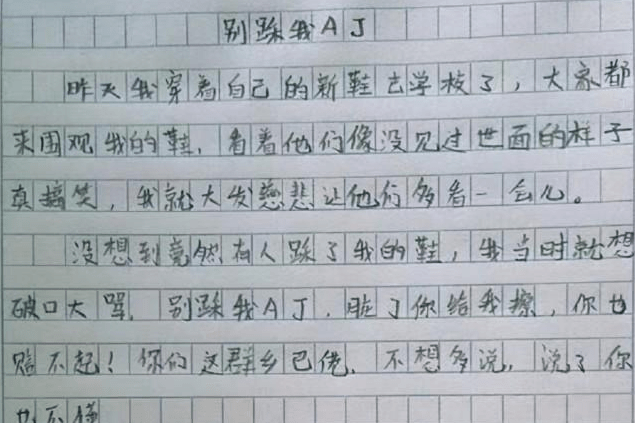 别踩我AJ
昨天我穿着自己的新鞋去学校了，大家都
来围观我的鞋，看着他们像没见过世面的样子
真搞笑，我就大发慈悲让他们多看一会儿。
没想到竟然有人踩了我的鞋，我当时就想
破口大骂，别踩我AJ，脏了你给我擦，你也
赔不起！你们这群乡巴佬，不想多说，说了你
也不懂